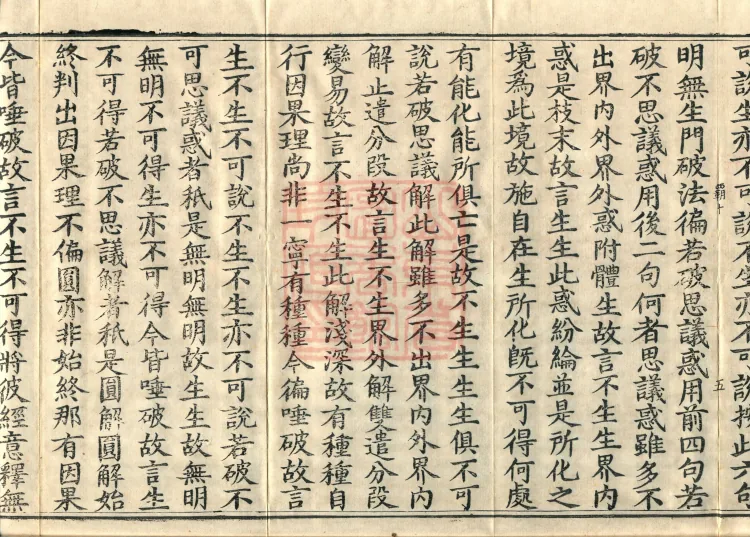 可說生亦不可說不生亦不可說據此六句
明無生門破法徧若破思議惑用前四句若
破不思議惑用後二句何者思議惑雖多不
出界內外界外惑附體生故言不生生界內
惑是枝末故言生生此惑紛綸並是所化之
境爲此境故施自在生所化旣不可得何處
覇十
五
有能化能所俱亡是故不生生生生俱不可
說若破思議解此解雖多不出界內外界內
解止遣分段故言生不生界外解雙遣分段
變易故言不生不生此解淺深故有種種自
行因果理尚非一寧有種種今徧唾破故言
生不生不可說不生不生亦不可說若破不
可思議惑者秖是無明無明故生生故無明
無明不可得生亦不可得今皆唾破故言生
不可得若破不思議解者秖是圓解圓解始
終判出因果理不偏圓亦非始終那有因果
今皆唾破故言不生不可得將彼經意釋無